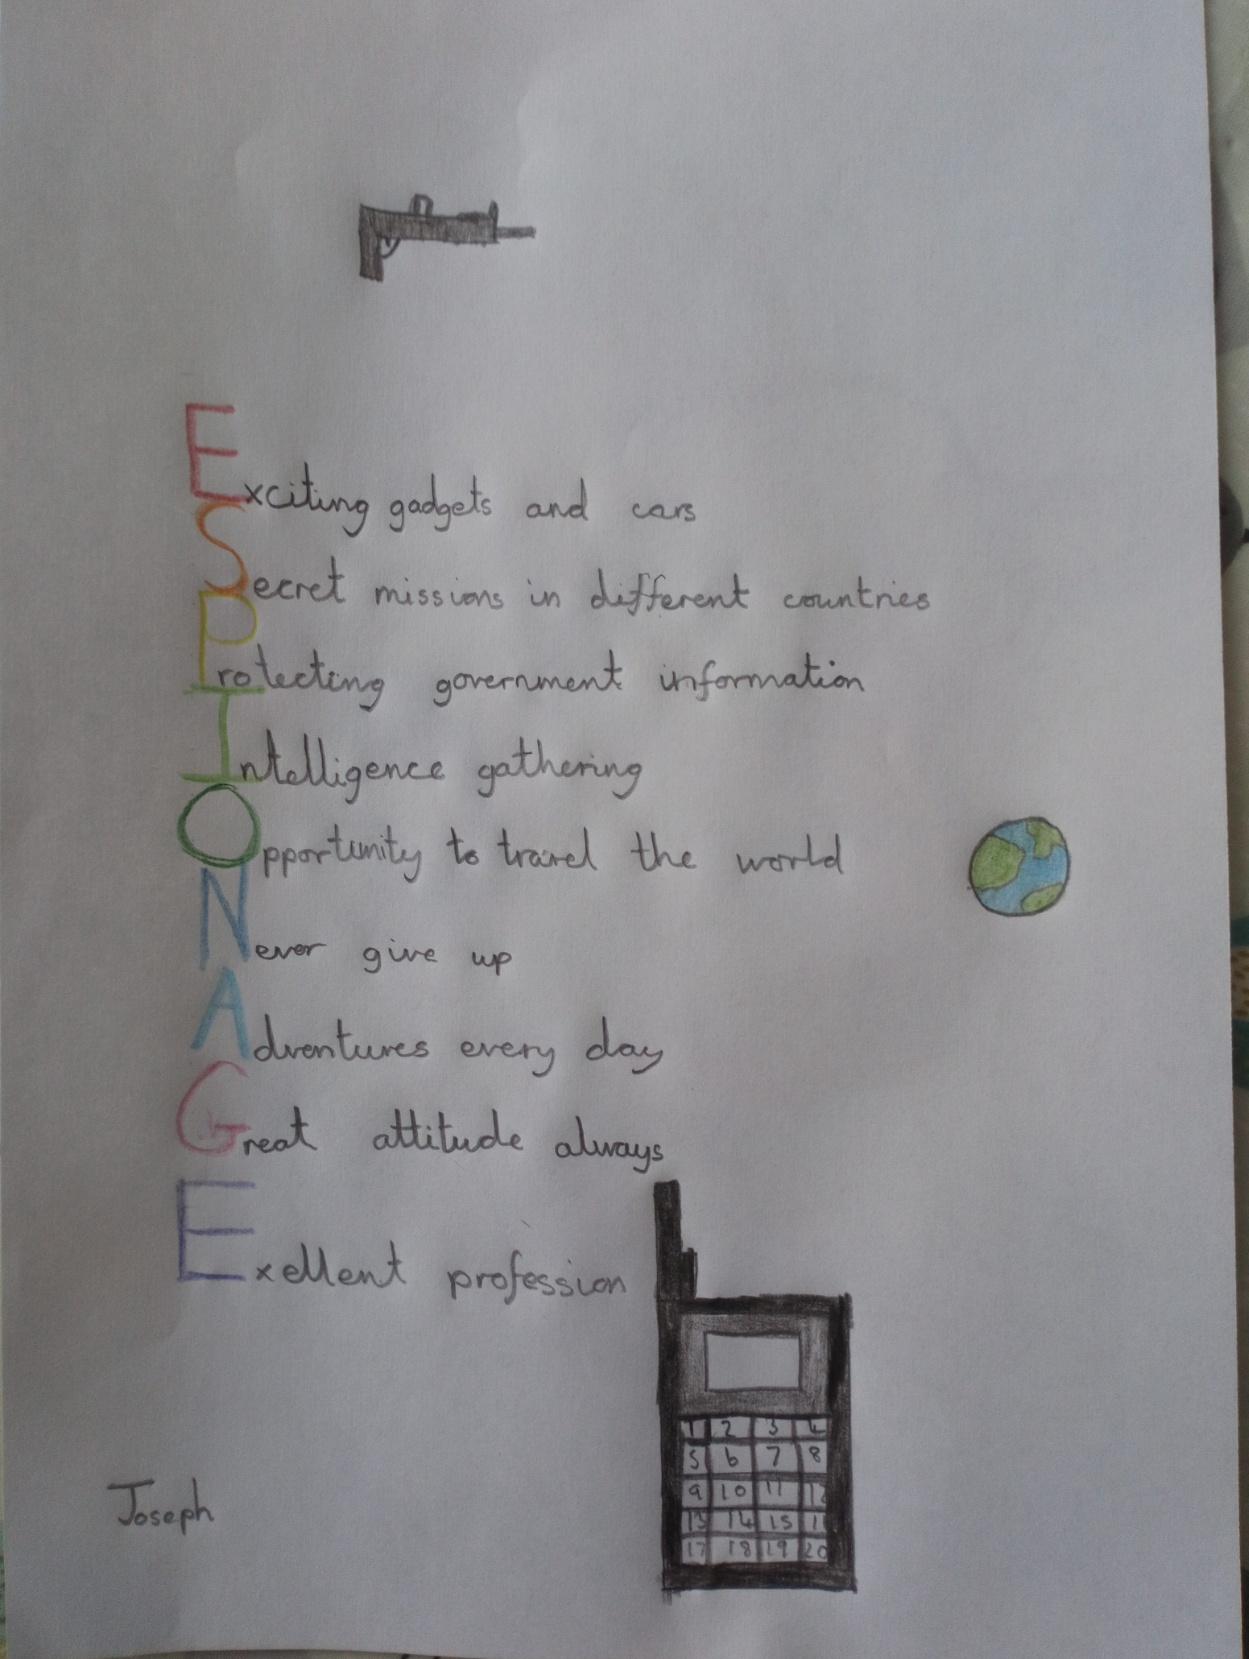 Exciting gadgets and cars
Secret missions in different countries
Protecting government information
Intelligence gathering
Opportunity to travel the world
Never give up
Adventures every day
Great attitude always
Exellent profession
1 2 3 4
5 6 7 8
9 10 11 12
13 14 15 1
17 18 19 20
Joseph